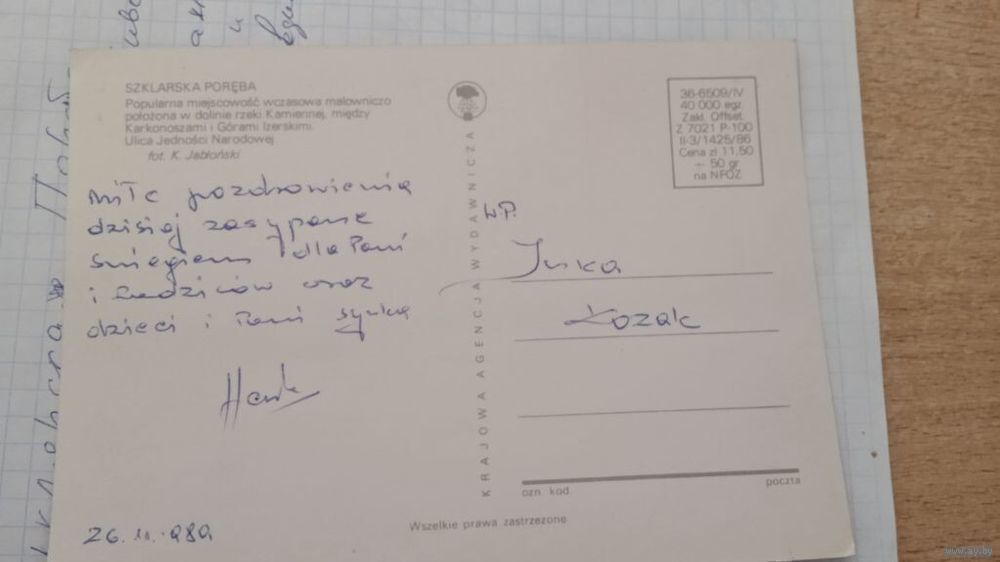 SZKLARSKA PORĘBA
Popularna miejscowość wczasowa malowniczo
położona w dolinie rzeki Kamiennej, między
Karkonoszami i Górami Izerskimi.
Ulica Jedności Narodowej
fot. K. Jabłoński
miłe pozdrowienia
dzisiaj zasypane
śniegiem dla Pani
i Rodziców oraz
dzieci i Pani synka
26.
KRAJOWA AGENCJA WYDAWNICZA
36-6509/IV
40 000 egz.
Zakł. Offset.
Z 7021 P-100
II-3/1425/86
Cena zł 11,50
+ 50 gr
na NFOZ
W.P.
Inka
Kozak
ozn. kod.
poczta
Wszelkie prawa zastrzeżone
www.ay.by